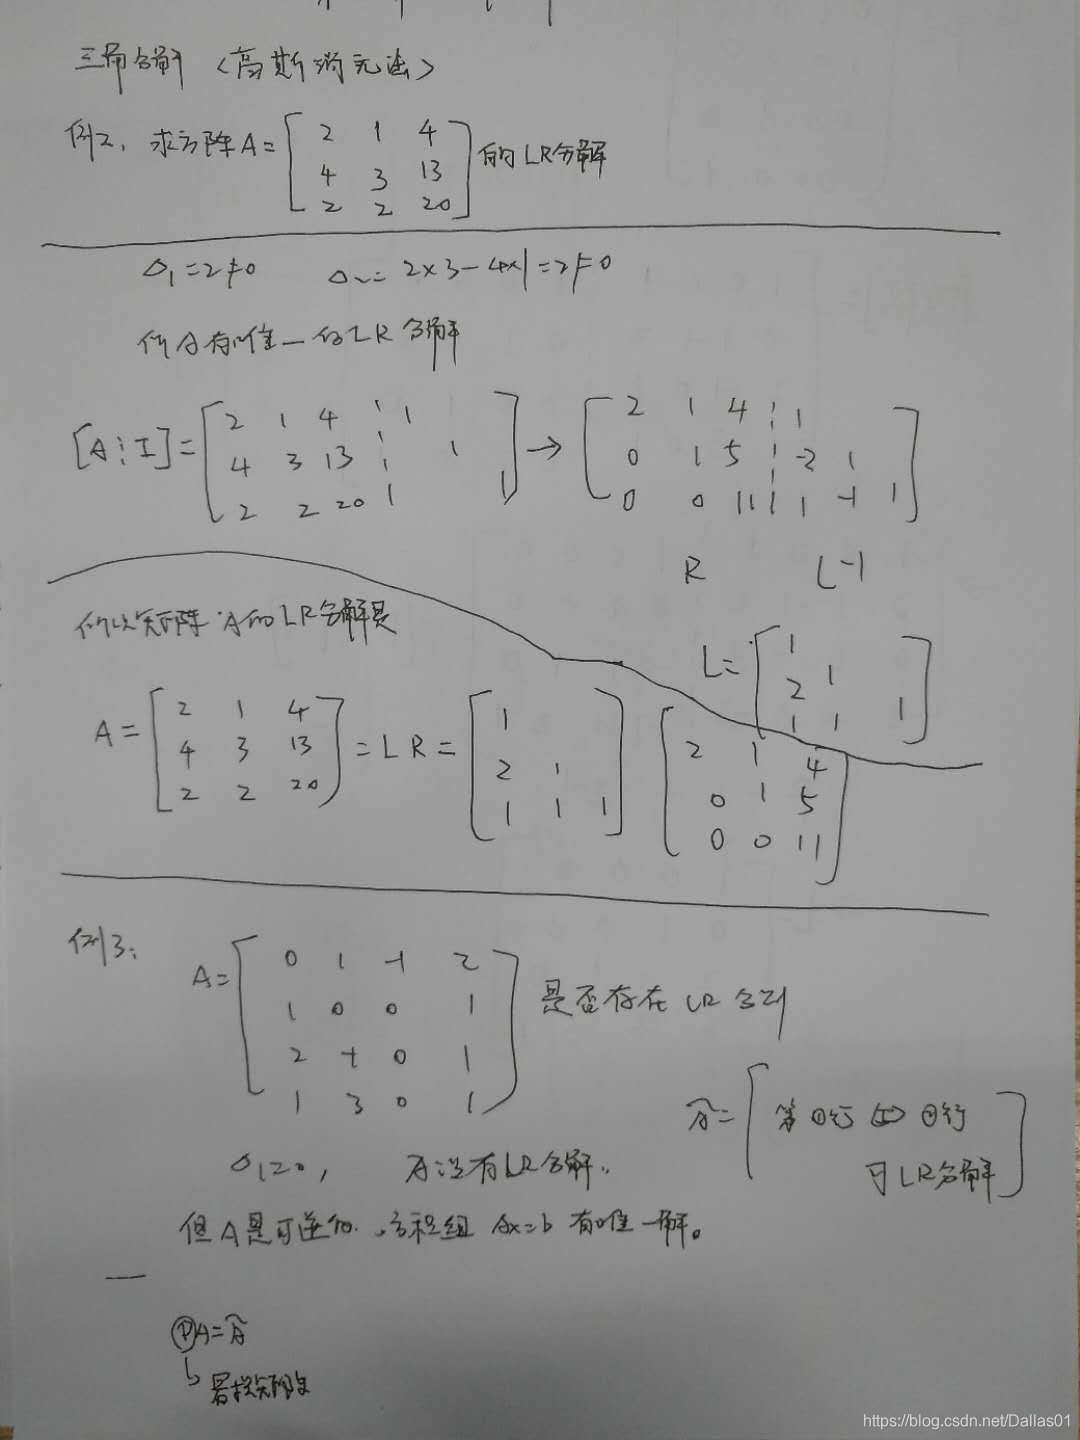 三角分解（高斯消元法）
例2. 求方阵A= [ 2 1 4
4 3 13
2 2 20 ] 的LR分解
Δ₁=2≠0 Δ₂= 2×3-4×1=2≠0
所A有唯一的LR分解
[A⋮I]= [ 2 1 4 ⋮ 1
4 3 13 ⋮ 1
2 2 20 ⋮ 1 ] → [ 2 1 4 ⋮ 1
0 1 5 ⋮ -2 1
0 0 11 ⋮ 1 -1 1 ]
R L⁻¹
L= [ 1
2 1
1 1 1 ]
所以矩阵A的LR分解是
A= [ 2 1 4
4 3 13
2 2 20 ] = LR = [ 1
2 1
1 1 1 ] [ 2 1 4
0 1 5
0 0 11 ]
例3:
A= [ 0 1 -1 2
1 0 0 1
2 -1 0 1
1 3 0 1 ] 是否存在LR分解
Ã= [ 第①行 ↔ ②行
可LR分解 ]
Δ₁=0, A没有LR分解.
但A是可逆的. 方程组 Ax=b 有唯一解。
PA=Ã
置换矩阵
https://blog.csdn.net/Dallas01